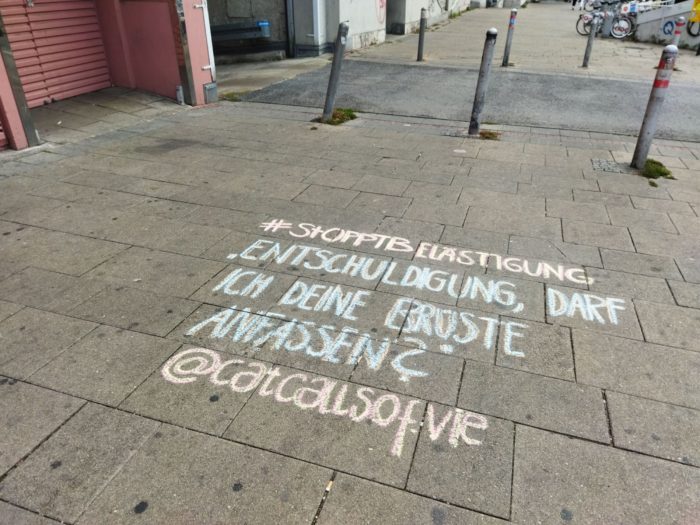 #STOPPTBELÄSTIGUNG
„ENTSCHULDIGUNG, DARF
ICH DEINE BRÜSTE
ANFASSEN?“
@catcallsofvie